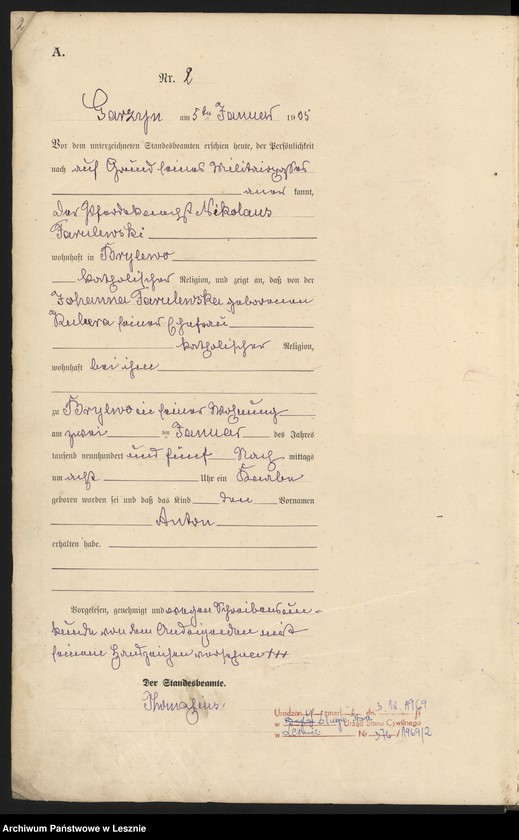 2
A.
Nr. 2
Garzyn am 5ten Januar 1905
Vor dem unterzeichneten Standesbeamten erschien heute, der Persönlichkeit
nach auf Grund seines Militairpasses
aner kannt,
der Pferdeknecht Nikolaus
wohnhaft in Brylewo
katholischer Religion, und zeigt an, daß von der
Johanna geborenen
seiner Ehefrau
katholischer Religion,
wohnhaft bei ihm
zu Brylewo in seiner Wohnung
am zwei ten Januar des Jahres
tausend neunhundert und fünf Nach mittags
um acht Uhr ein Knabe
geboren worden sei und daß das Kind den Vornamen
Anton
erhalten habe.
Vorgelesen, genehmigt und wegen Schreibensun-
kunde von dem Anzeigenden mit
seinem Handzeichen versehen +++
Der Standesbeamte.
3.12.1969
Urząd Stanu Cywilnego
w Nr 376/1969/2
Archiwum Państwowe w Lesznie